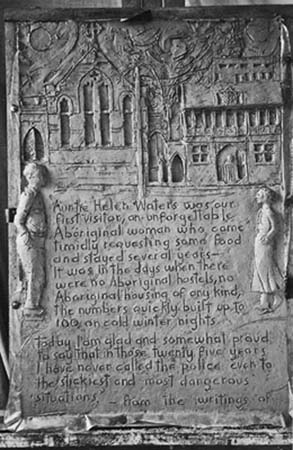 Auntie Helen Waters was our
first visitor, an unforgettable
Aboriginal woman who came
timidly requesting some food
and stayed several years —
It was in the days when there
were no Aboriginal hostels, no
Aboriginal housing of any kind,
the numbers quickly built up to
100, on cold winter nights.
Today I am glad and somewhat proud
to say that in those twenty five years
I have never called the police even to
the stickiest and most dangerous
situations. – from the writings of